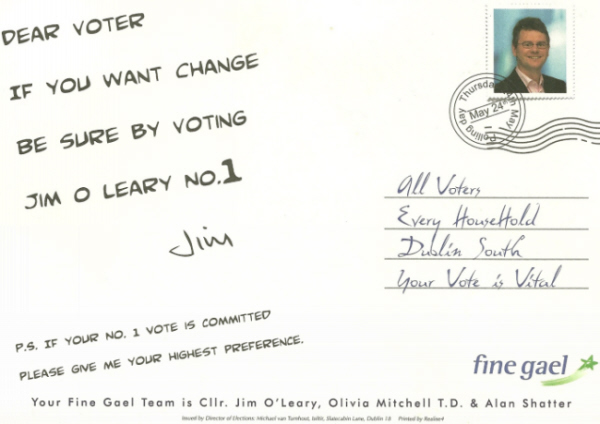 DEAR VOTER
IF YOU WANT CHANGE
BE SURE BY VOTING
JIM O LEARY NO.1
Jim
P.S. IF YOUR NO. 1 VOTE IS COMMITTED
PLEASE GIVE ME YOUR HIGHEST PREFERENCE.
Polling day Thursday 24th May
May 24th
All Voters
Every HouseHold
Dublin South
Your Vote is Vital
fine gael
Your Fine Gael Team is Cllr. Jim O'Leary, Olivia Mitchell T.D. & Alan Shatter
Issued by Director of Elections: Michael van Turnhout, Dublin 18 Printed by